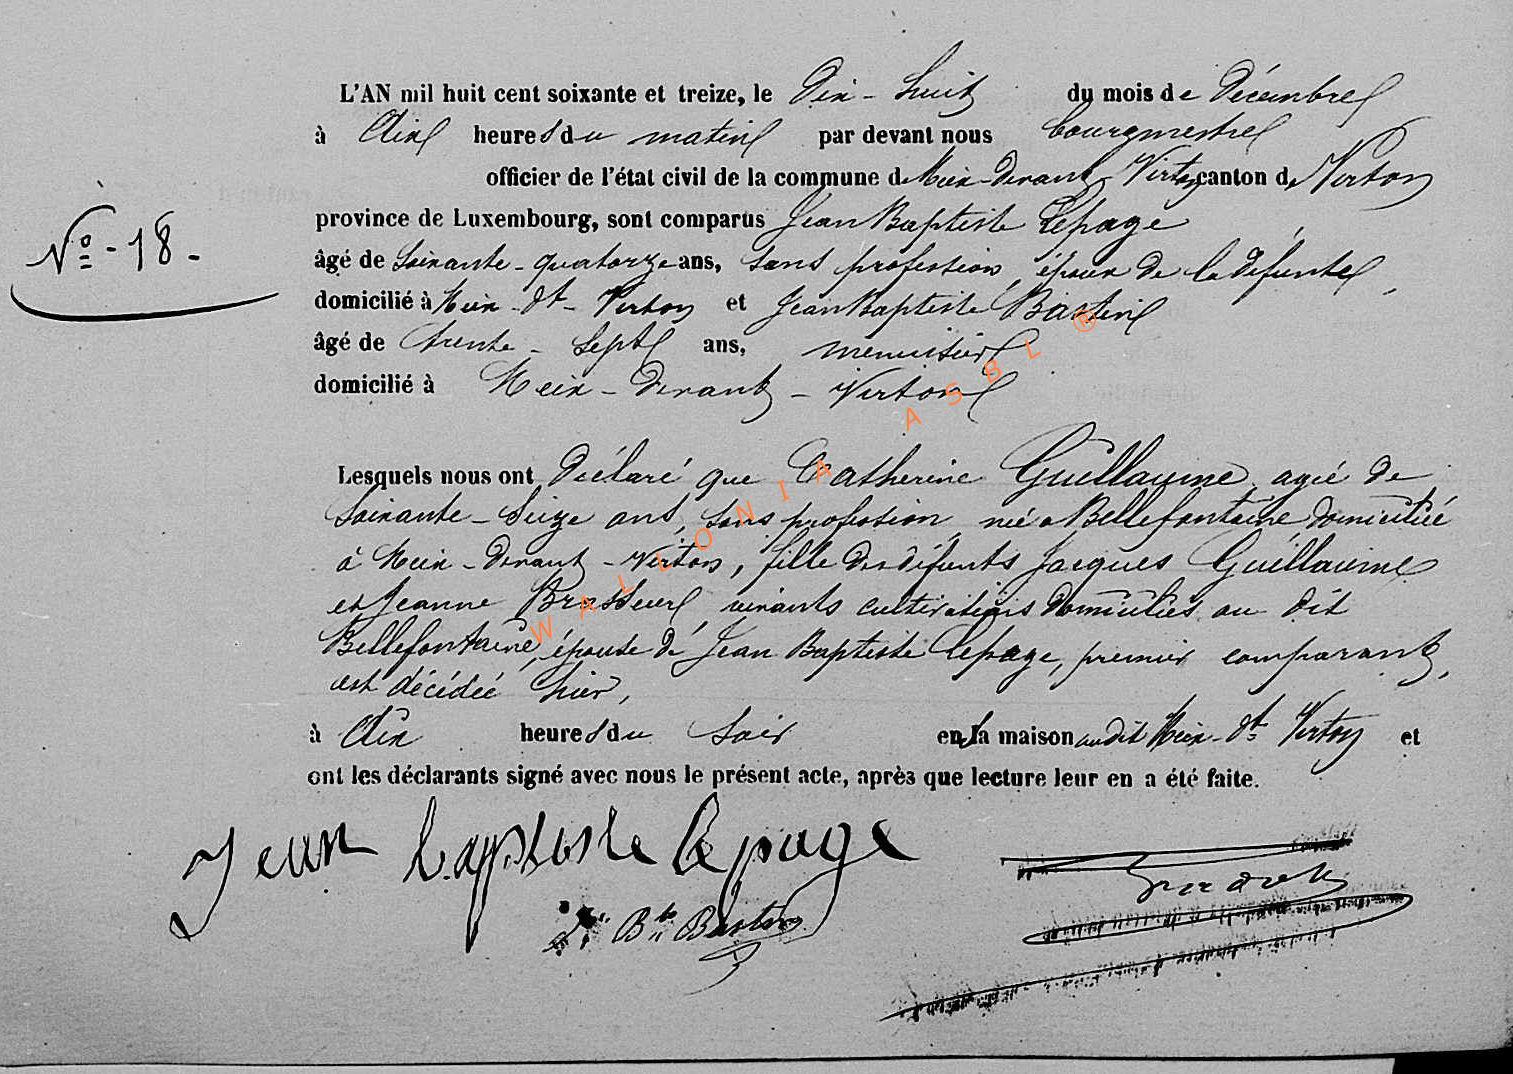 L'AN mil huit cent soixante et treize, le Dix-huit du mois de Décembre
à Dix heures du matin par devant nous bourgmestre
officier de l'état civil de la commune de Meix-devant Virton canton de Virton
N° - 18 -
province de Luxembourg, sont comparus Jean Baptiste Lepage
âgé de Soixante-quatorze ans, sans profession, époux de la défunte,
domicilié à Meix-dt-Virton et Jean Baptiste Bastin
âgé de trente-sept ans, menuisier
domicilié à Meix-devant-Virton
Lesquels nous ont déclaré que Catherine Guillaume agée de
Soixante-Seize ans, sans profession, née a Bellefontaine domiciliée
à Meix-devant-Virton, fille des défunts Jacques Guillaume
et Jeanne Brasseur, vivants cultivateurs domiciliés au dit
Bellefontaine, épouse de Jean Baptiste Lepage, premier comparant,
est décédée hier,
à Dix heures du soir en la maison audit Meix-dt Virton et
ont les déclarants signé avec nous le présent acte, après que lecture leur en a été faite.
Jean baptiste lepage
Bte Bastin
WALLONIA ASBL ®